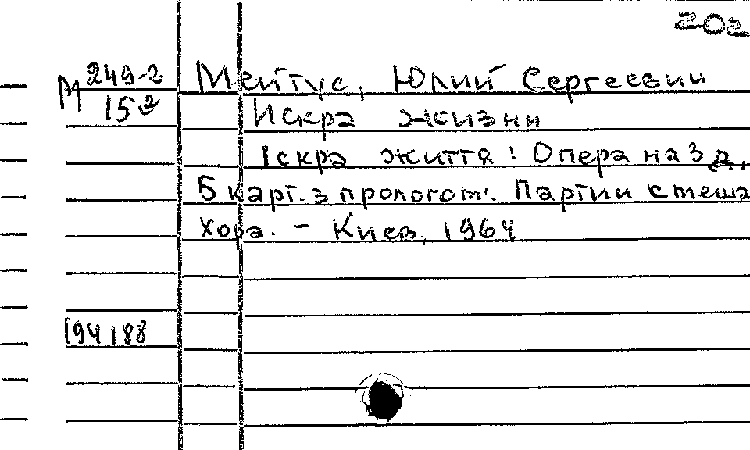 202
М 249-2
15
Мейтус, Юлий Сергеевич
Искра жизни
Iскра життя: Опера на 3 д.,
5 карт. з прологом. Партии смеша
хора. - Киев, 1964
194188